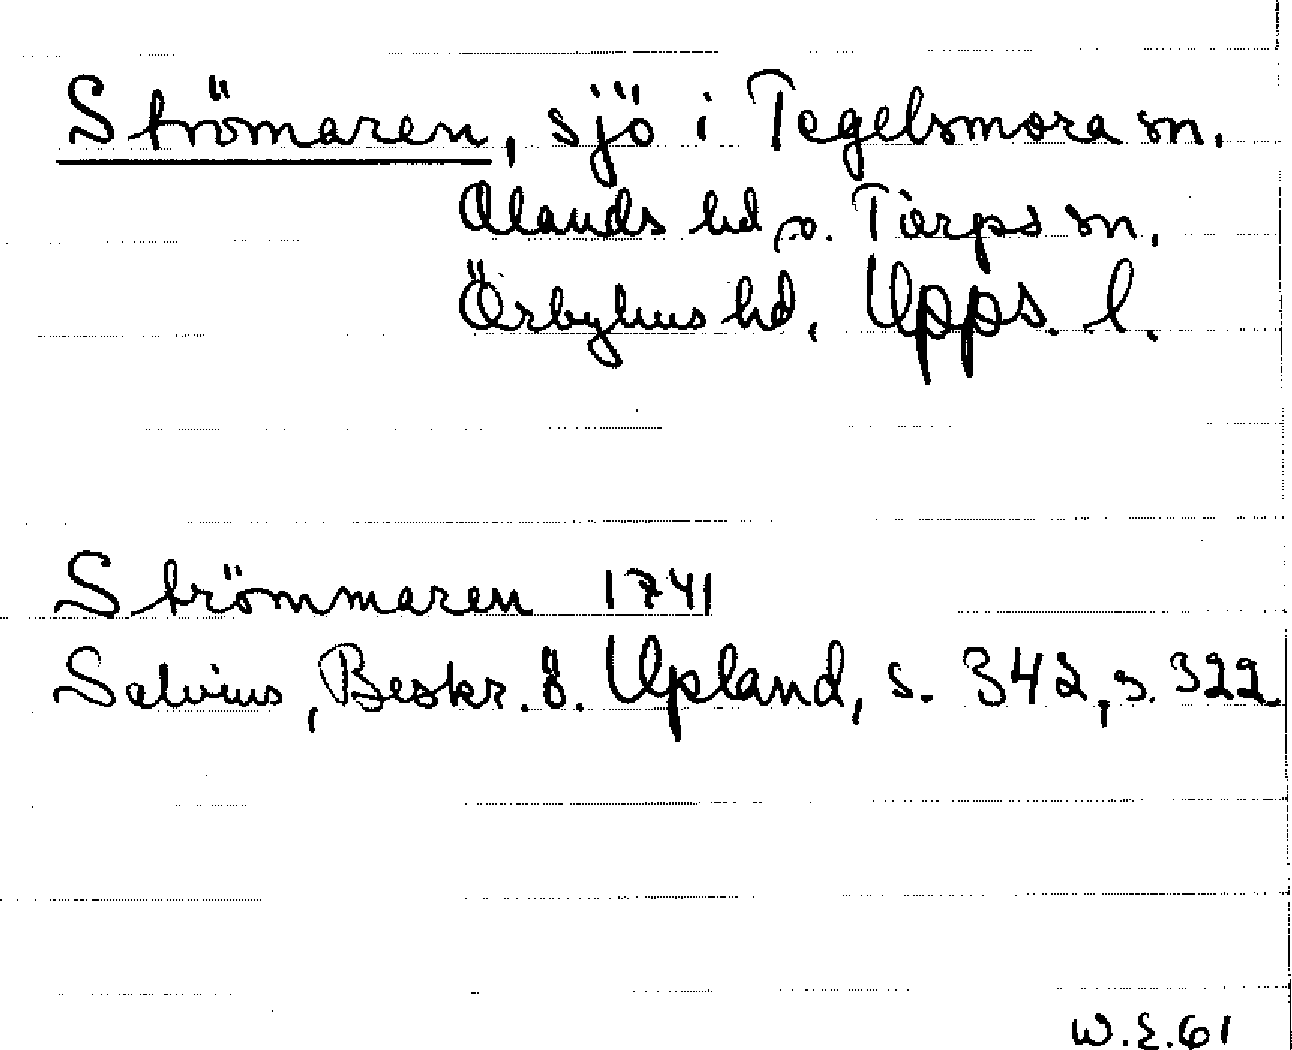 Strömaren, sjö i Tegelsmora sn.
Olands hd o. Tierps sn.
Örbyhus hd, Upps. l.
Strömmaren 1741
Salvius, Beskr. ö. Upland, s. 342, s. 322
W.E.61